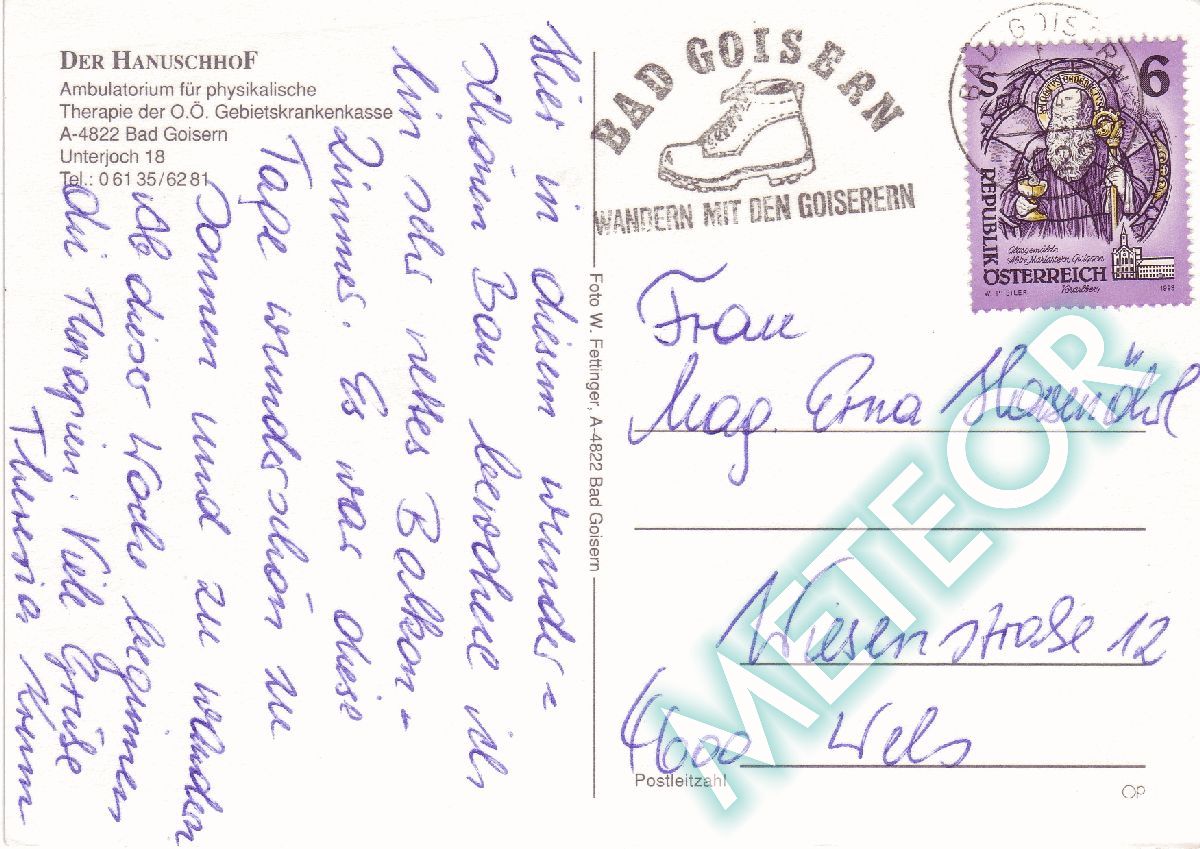 DER HANUSCHHOF
Ambulatorium für physikalische
Therapie der O.Ö. Gebietskrankenkasse
A-4822 Bad Goisern
Unterjoch 18
Tel.: 0 61 35/62 81
Hier in diesem wunder-
schönen Bau bewohne ich
ein sehr nettes Balkon-
Zimmer. Es war diese
Tage wunderschön zu
Sonnen und zu wandern
Ab dieser Woche beginnen
die Therapien. Viele Grüße
Theresia
Foto W. Fettinger, A-4822 Bad Goisern
BAD GOISERN
WANDERN MIT DEN GOISERERN
BAD GOISERN
S 6
REPUBLIK
ÖSTERREICH
Glasgemälde
Abtei Mariastern, Gwiggen
Vorarlberg
1993
Frau
Mag. Erna Hasenöhrl
Wiesenstraße 12
4600 Wels
Postleitzahl
QP
METEOR